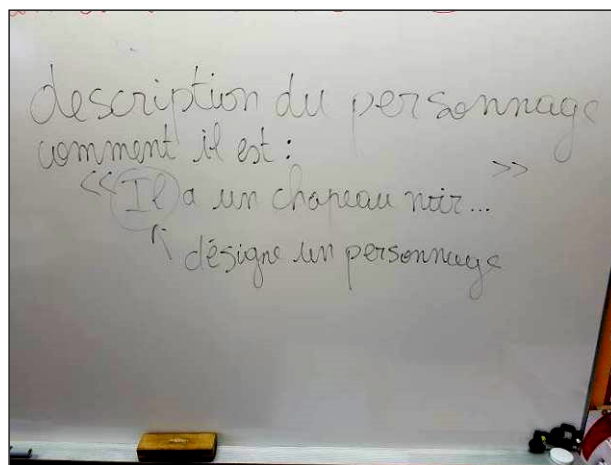 description du personnage
comment il est :
« Il a un chapeau noir... »
désigne un personnage